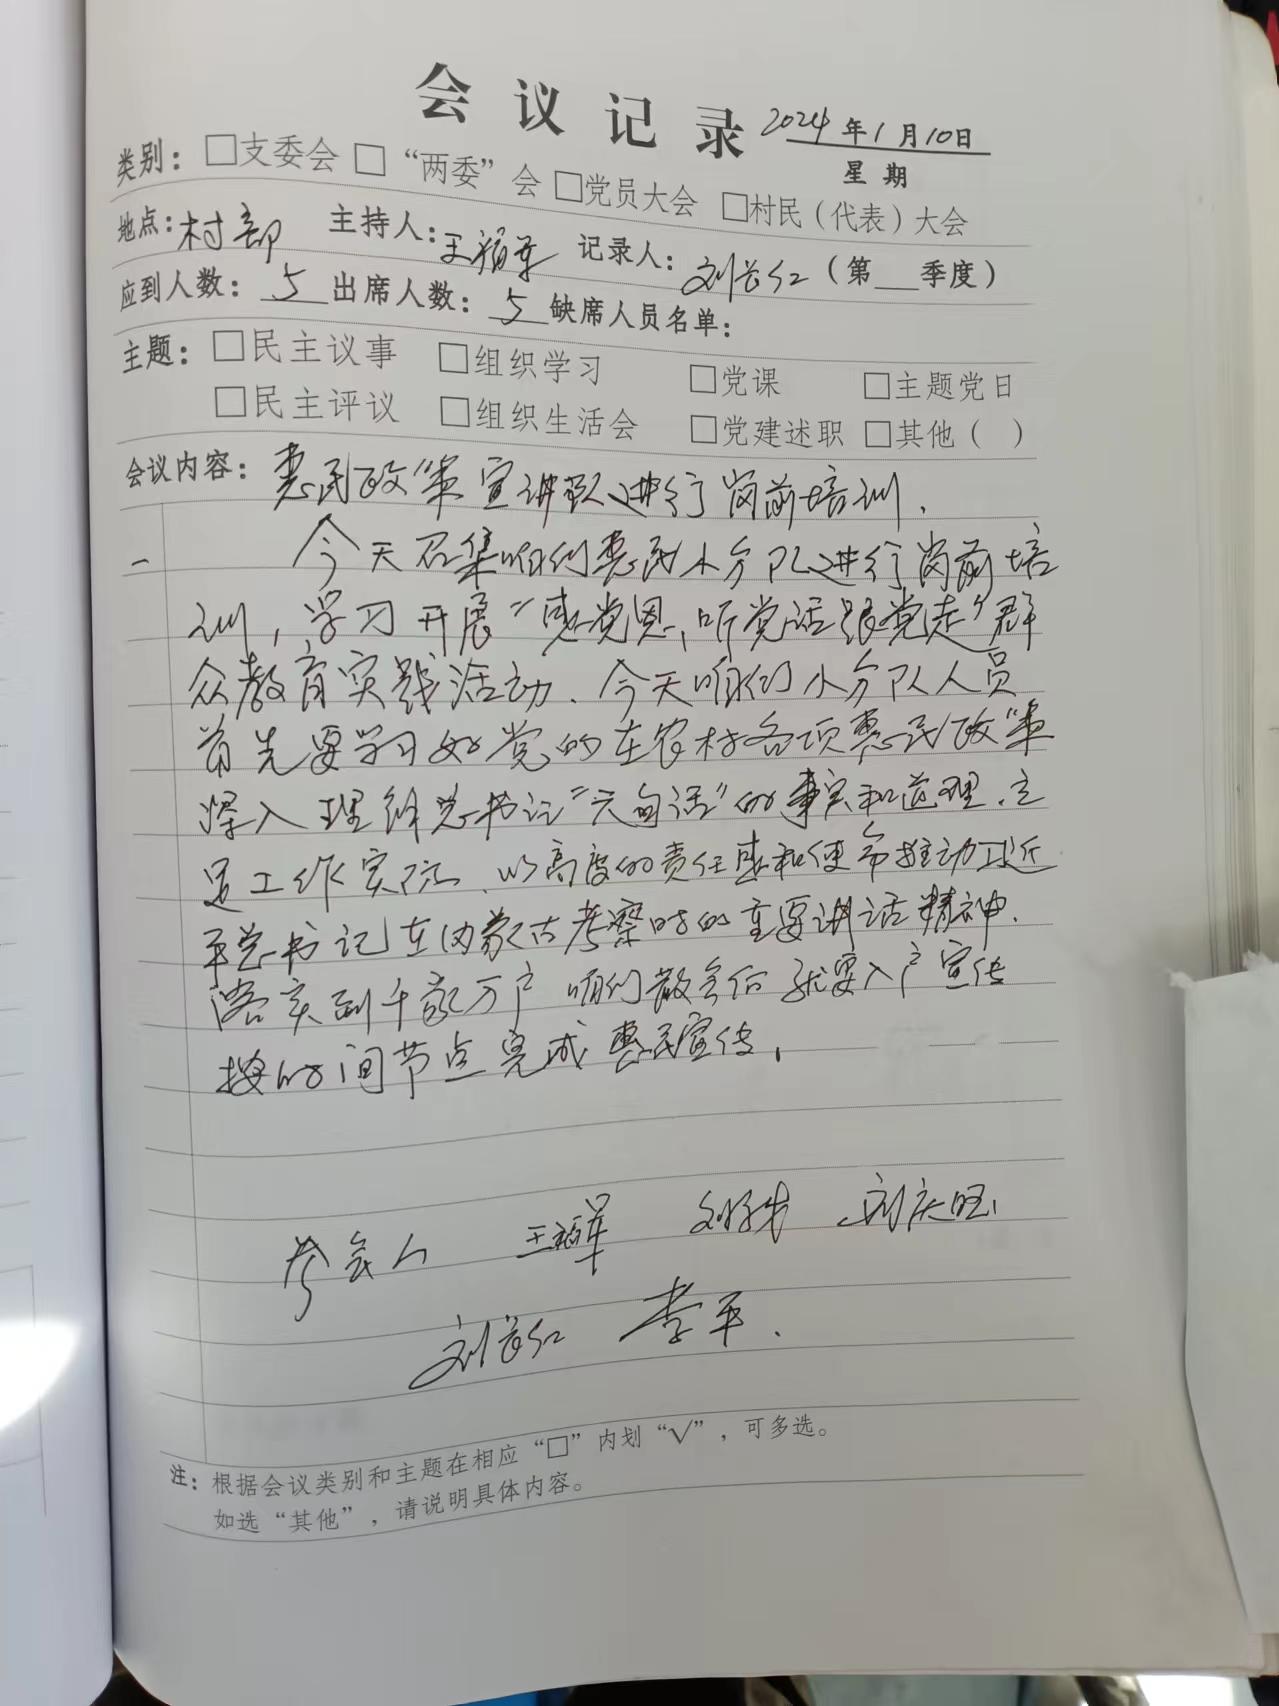 会议记录 2024年1月10日
星期
类别：□支委会 □“两委”会 □党员大会 □村民（代表）大会
地点：村部 主持人：王福军 记录人：刘长红（第__季度）
应到人数：5 出席人数：5 缺席人员名单：
主题：□民主议事 □组织学习 □党课 □主题党日
□民主评议 □组织生活会 □党建述职 □其他（ ）
会议内容：惠民政策宣讲队进行岗前培训.
一 今天召集咱们惠民小分队进行岗前培
训，学习开展“感党恩、听党话跟党走”群
众教育实践活动、今天咱们小分队人员
首先要学习好党的在农村各项惠民政策
深入理解总书记“六句话”的事实和道理、立
足工作实际、以高度的责任感和使命推动习近
平总书记在内蒙古考察时的重要讲话精神.
落实到千家万户 咱们散会后就要入户宣传
按时间节点完成惠民宣传，
参会人 王福军 刘庆旺
刘长红 李平.
注：根据会议类别和主题在相应“□”内划“√”，可多选。
如选“其他”，请说明具体内容。